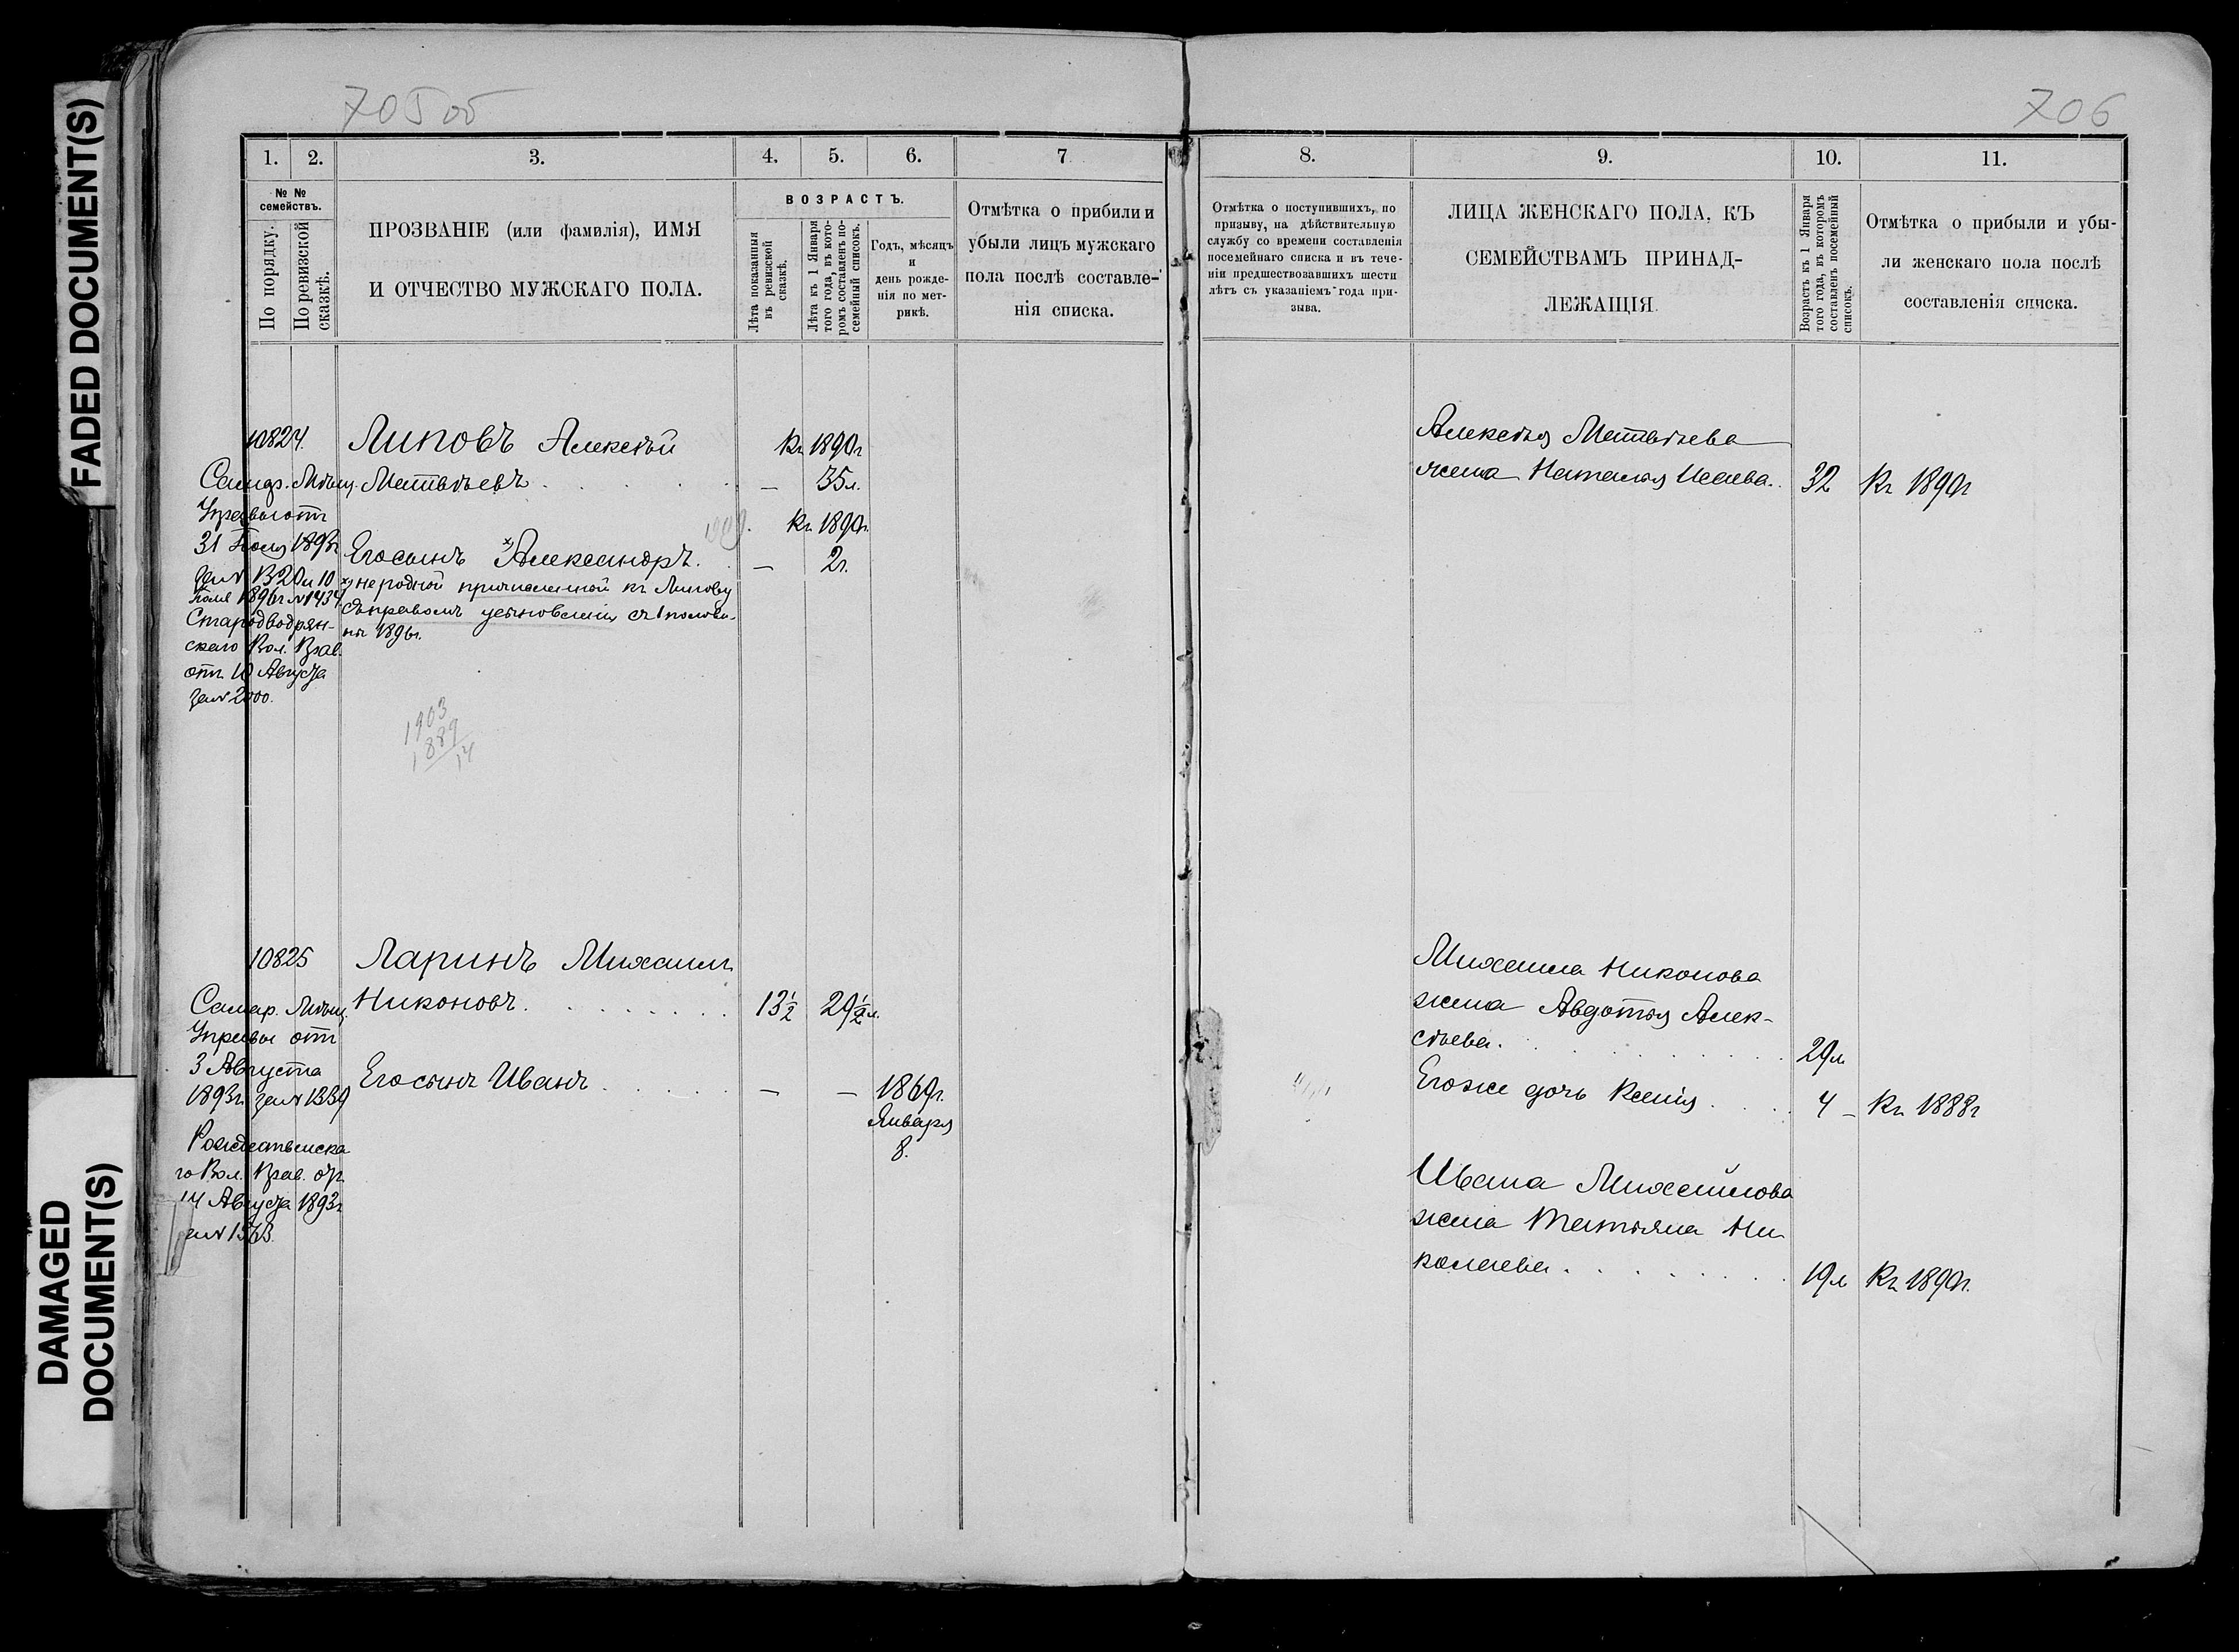 FADED DOCUMENT(S)
DAMAGED
DOCUMENT(S)
705 об
1. 2. 3. 4. 5. 6. 7
№ №
семействъ.
По порядку.
По ревизской
сказкѣ.
ПРОЗВАНІЕ (или фамилія), ИМЯ
И ОТЧЕСТВО МУЖСКАГО ПОЛА.
ВОЗРАСТЪ.
Лѣта показанныя
въ ревизской
сказкѣ.
Лѣта къ 1 Января
того года, въ кото-
ромъ составленъ по-
семейный списокъ.
Годъ, мѣсяцъ
и
день рожде-
нія по мет-
рикѣ.
Отмѣтка о прибыли и
убыли лицъ мужскаго
пола послѣ составле-
нія списка.
10824.
Липовъ Алексѣй
Къ 1890г
Матвѣевъ
— 35л.
Самар. Мѣщ.
Управы отъ
31 Іюля 1893г
за № 1320 и 10
Іюля 1896г № 1434
Стародворян-
скаго Вол. Прав.
отъ 10 Августа
за № 2000.
Къ 1890г.
Его сынъ х) Александръ.
— 2г.
х) не родной причисленной къ Липову
съ правомъ усыновленія съ 1 полови-
ны 1896г.
1903
1889
14
10825
Ларинъ Михаилъ
Никоновъ
13½ 29½ л.
Самар. Мѣщ.
Управы отъ
3 Августа
1893г за № 1339
Рождественска
го Вол. Прав. от
14 Августа 1893г
Его сынъ Иванъ
— — 1869г.
Января
8.
706
8. 9. 10. 11.
Отмѣтка о поступившихъ, по
призыву, на дѣйствительную
службу со времени составленія
посемейнаго списка и въ тече-
ніи предшествовавшихъ шести
лѣтъ съ указаніемъ года при-
зыва.
ЛИЦА ЖЕНСКАГО ПОЛА, КЪ
СЕМЕЙСТВАМЪ ПРИНАД-
ЛЕЖАЩІЯ.
Возрастъ къ 1 Января
того года, въ которомъ
составленъ посемейный
списокъ.
Отмѣтка о прибыли и убы-
ли женскаго пола послѣ
составленія списка.
Алексѣя Матвѣева
жена Наталья Исаева. 32 Къ 1890г
Михаила Никонова
жена Авдотья Алек-
сѣева. 29л
Его же дочь Ксенія 4 — Къ 1888г
Ивана Михайлова
жена Татьяна Ни
колаева 19л Къ 1890г.